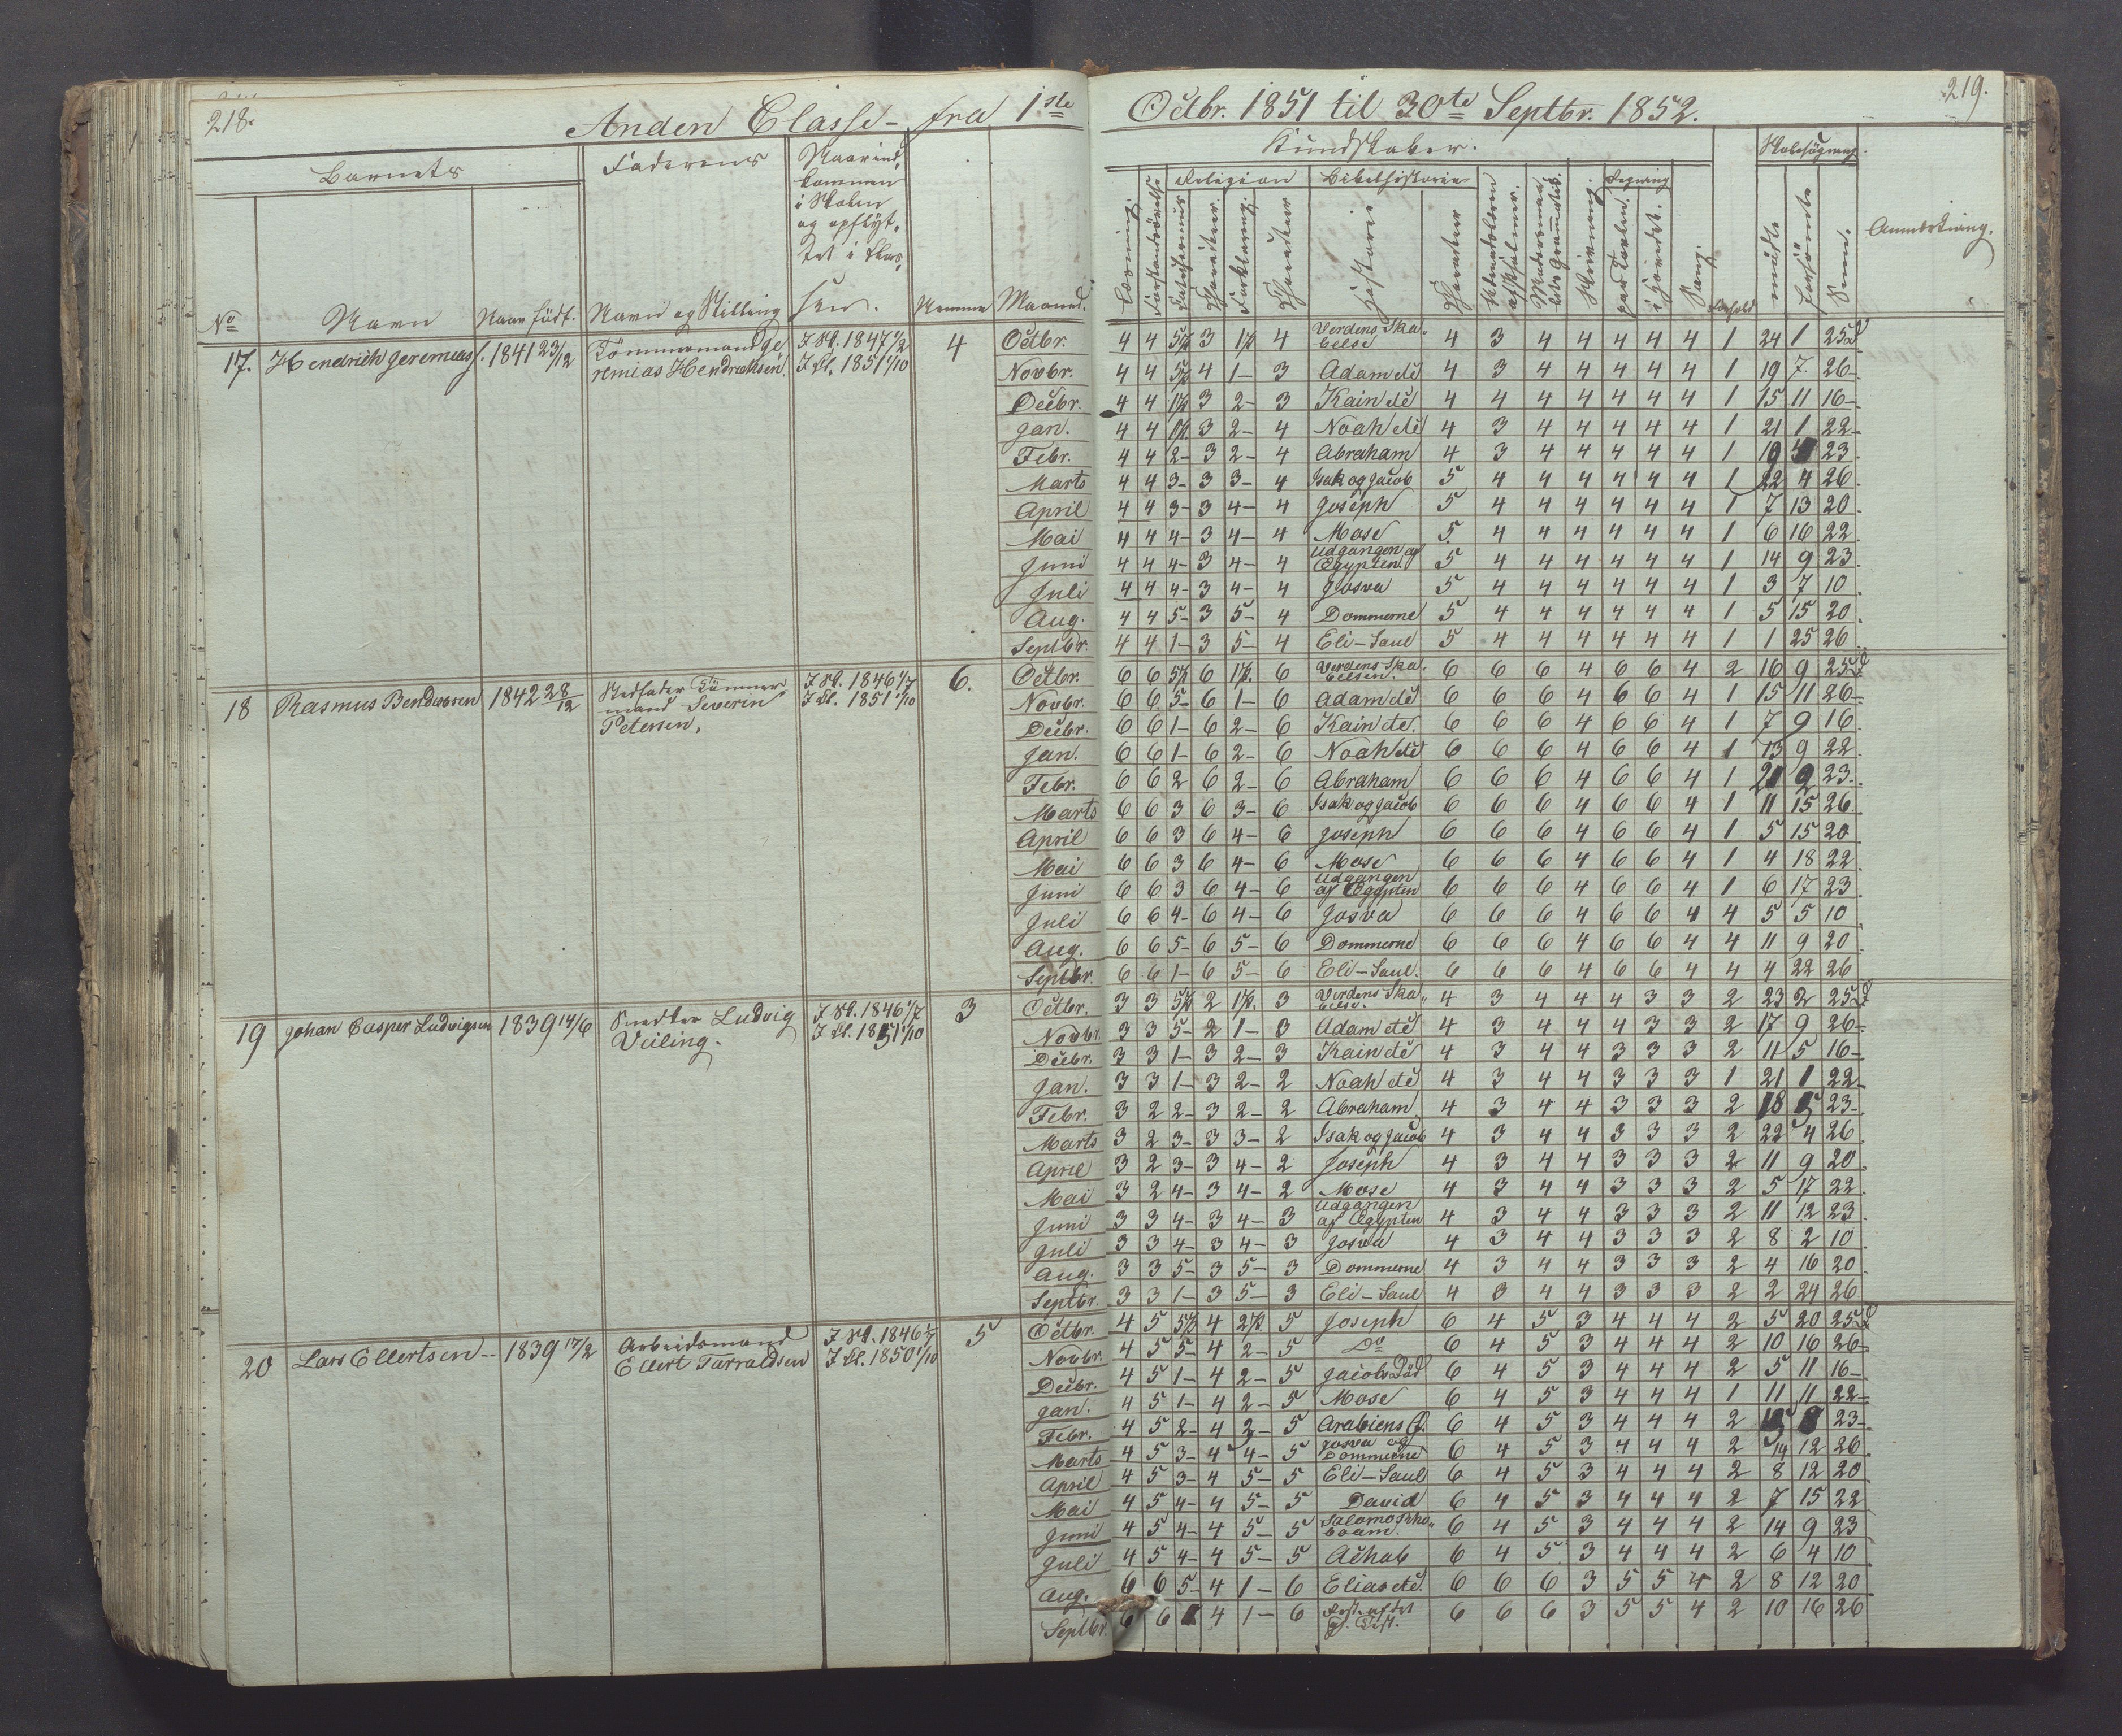 218.
Anden Classe - fra 1ste
Octbr. 1851 til 30te Septbr. 1852.
219.
Barnets
Faderens
Naar ind
kommen
i Skolen
og opflyt
tet i Clas
sen.
No
Navn
Naar født.
Navn og Stilling
Maaned.
Kundskaber.
Skolesøgning.
Religion
Bibelhistorie
Regning
Læsning.
Forstandsøvelse
Catechismus
Characteer.
Forklaring.
Characteer
Historie
Characteer
Udenadslæren
af Psalmer.
Skrivning.
paa Tavlen.
i Hovedet.
Sang.
Forhold
mødte
forsømte
Sum.
Anmærkning.
17. Hendrich Jeremias s. 1841 23/12 Tømmermand Je I Sk. 1847 1/2 4 Octbr. 4 4 5 1/2 3 1 1/2 4 Verdens Ska 4 3 4 4 4 4 4 1 24 1 25 d
remias Hendrichsen. I Cl. 1851 1/10 belse
Novbr. 4 4 5 1/2 4 1 - 3 Adam etc 4 3 4 4 4 4 4 1 19 7 26 -
Decbr. 4 4 1 1/2 3 2 - 3 Kain etc 4 4 4 4 4 4 4 1 15 11 16 -
Jan. 4 4 1 1/2 3 2 - 4 Noah etc 4 3 4 4 4 4 4 1 21 1 22 -
Febr. 4 4 2 - 3 2 - 4 Abraham 4 3 4 4 4 4 4 1 19 4 23
Marts 4 4 3 - 3 3 - 4 Isak og Jacob 5 4 4 4 4 4 4 1 22 4 26
April 4 4 3 - 3 4 - 4 Joseph 5 4 4 4 4 4 4 1 7 13 20
Mai 4 4 4 - 3 4 - 4 Mose 5 4 4 4 4 4 4 1 6 16 22
Juni 4 4 4 - 3 4 - 4 Udgangen af Egypten. 5 4 4 4 4 4 4 1 14 9 23
Juli 4 4 4 - 3 4 - 4 Josva 5 4 4 4 4 4 4 1 3 7 10
Aug. 4 4 5 - 3 5 - 4 Dommerne 5 4 4 4 4 4 4 1 5 15 20
Septbr. 4 4 1 - 3 5 - 4 Eli - Saul 5 4 4 4 4 4 4 1 1 25 26
18 Rasmus Bendixsen 1842 28/12 Stedfader Tømmer I Sk. 1846 1/7 6. Octbr. 6 6 5 1/2 6 1 1/2. 6 Verdens Ska 6 6 6 4 6 6 4 2 16 9 25 d
mand Severin I Cl. 1851 1/10 belsen.
Petersen.
Novbr. 6 6 5 - 6 1 - 6 Adam etc 6 6 6 4 6 6 4 1 15 11 26 -
Decbr. 6 6 1 - 6 2 - 6 Kain etc. 6 6 6 4 6 6 4 1 7 9 16
Jan. 6 6 1 - 6 2 - 6 Noah etc 6 6 6 4 6 6 4 1 13 9 22
Febr. 6 6 2 6 2 - 6 Abraham 6 6 6 4 6 6 4 1 21 2 23.
Marts 6 6 3 6 3 - 6 Isak og Jacob 6 6 6 4 6 6 4 1 11 15 26
April 6 6 3 6 4 - 6 Joseph 6 6 6 4 6 6 4 1 5 15 20
Mai 6 6 3 6 4 - 6 Mose 6 6 6 4 6 6 4 1 4 18 22
Juni 6 6 3 6 4 - 6 Udgangen af Egypten 6 6 6 4 6 6 4 1 6 17 23
Juli 6 6 4 - 6 4 - 6 Josva 6 6 6 4 6 6 4 4 5 5 10
Aug. 6 6 5 - 6 5 - 6 Dommerne 6 6 6 4 6 6 4 4 11 9 20
Septbr. 6 6 1 - 6 5 - 6 Eli - Saul. 6 6 6 4 6 6 4 4 4 22 26
19 Johan Casper Ludvigsen 1839 14/6 Snedker Ludvig I Sk. 1846 1/7 3 Octbr. 3 3 5 1/2 2 1 1/2. 3 Verdens Ska 4 3 4 4 4 3 3 2 23 2 25 d
I Cl. 1851 1/10 belse.
Novbr. 3 3 5 - 2 1 - 3 Adam etc 4 3 4 4 4 3 3 2 17 9 26 -
Decbr. 3 3 1 - 3 2 - 3 Kain etc 4 3 4 4 3 3 3 2 11 5 16 -
Jan. 3 3 1 - 3 2 - 2 Noah etc 4 3 4 4 3 3 3 1 21 1 22 -
Febr. 3 2 2 - 3 2 - 2 Abraham 4 3 4 4 3 3 3 2 18 5 23 -
Marts 3 2 3 - 3 3 - 2 Isak og Jacob 4 3 4 4 3 3 3 2 22 4 26
April 3 2 3 - 3 4 - 2 Joseph 4 3 4 4 3 3 3 2 11 9 20
Mai 3 2 4 - 3 4 - 2 Mose 4 3 4 4 3 3 3 2 5 17 22
Juni 3 3 4 - 3 4 - 3 Udgangen af Egypten 4 3 4 4 3 3 3 2 11 12 23
Juli 3 3 4 - 3 4 - 3 Josva 4 3 4 4 3 3 3 2 8 2 10
Aug. 3 3 5 - 3 5 - 3 Dommerne 4 3 4 4 3 3 3 2 4 16 20
Septbr. 3 3 1 - 3 5 - 3 Eli - Saul 4 3 4 4 3 3 3 2 2 24 26
20 Lars Ellertsen - 1839 17/2 Arbeidsmand I Sk. 1846 1/7 5 Octbr. 4 5 5 1/2 4 2 1/2 5 Joseph 6 4 5 3 4 4 4 2 5 20 25 d
Ellert Tarraldsen I Cl. 1850 1/10
Novbr. 4 5 5 - 4 2 - 5 Do 6 4 5 3 4 4 4 2 10 16 26 -
Decbr. 4 5 1 - 4 2 - 5 Jacobs Død 6 4 5 3 4 4 4 2 5 11 16 -
Jan. 4 5 1 - 4 2 - 5 Mose 6 4 5 3 4 4 4 1 11 11 22 -
Febr. 4 5 2 - 4 2 - 5 Arabiens Ø. 6 4 5 3 4 4 4 2 15 8 23 -
Marts 4 5 3 - 4 4 - 5 Josva og Dommerne 6 4 5 3 4 4 4 2 14 12 26
April 4 5 3 - 4 5 - 5 Eli - Saul 6 4 5 3 4 4 4 2 8 12 20
Mai 4 5 4 - 4 5 - 5 David 6 4 5 3 4 4 4 2 7 15 22
Juni 4 5 4 - 4 5 - 5 Salomo Rho boam. 6 4 5 3 4 4 4 2 14 9 23
Juli 4 5 4 - 4 5 - 5 Achab 6 4 5 3 4 4 4 2 6 4 10
Aug. 6 6 5 - 4 1 - 6 Elias etc. 6 6 6 3 5 5 4 2 8 12 20
Septbr. 6 6 1 4 1 - 6 6 6 6 3 5 5 4 2 10 16 26